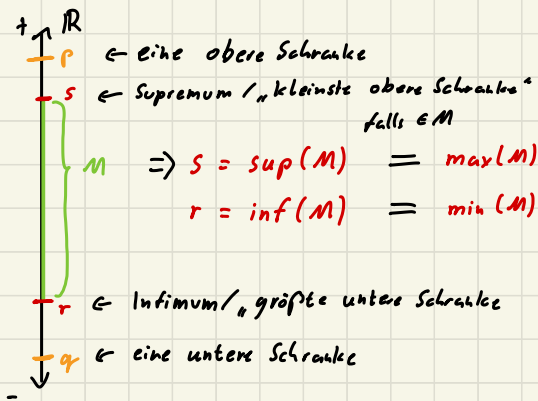 + ℝ
p ← eine obere Schranke
s ← Supremum / „kleinste obere Schranke“
falls ∈ M
M ⇒ s = sup (M) = max (M)
r = inf (M) = min (M)
r ← Infimum / „größte untere Schranke
q ← eine untere Schranke
-